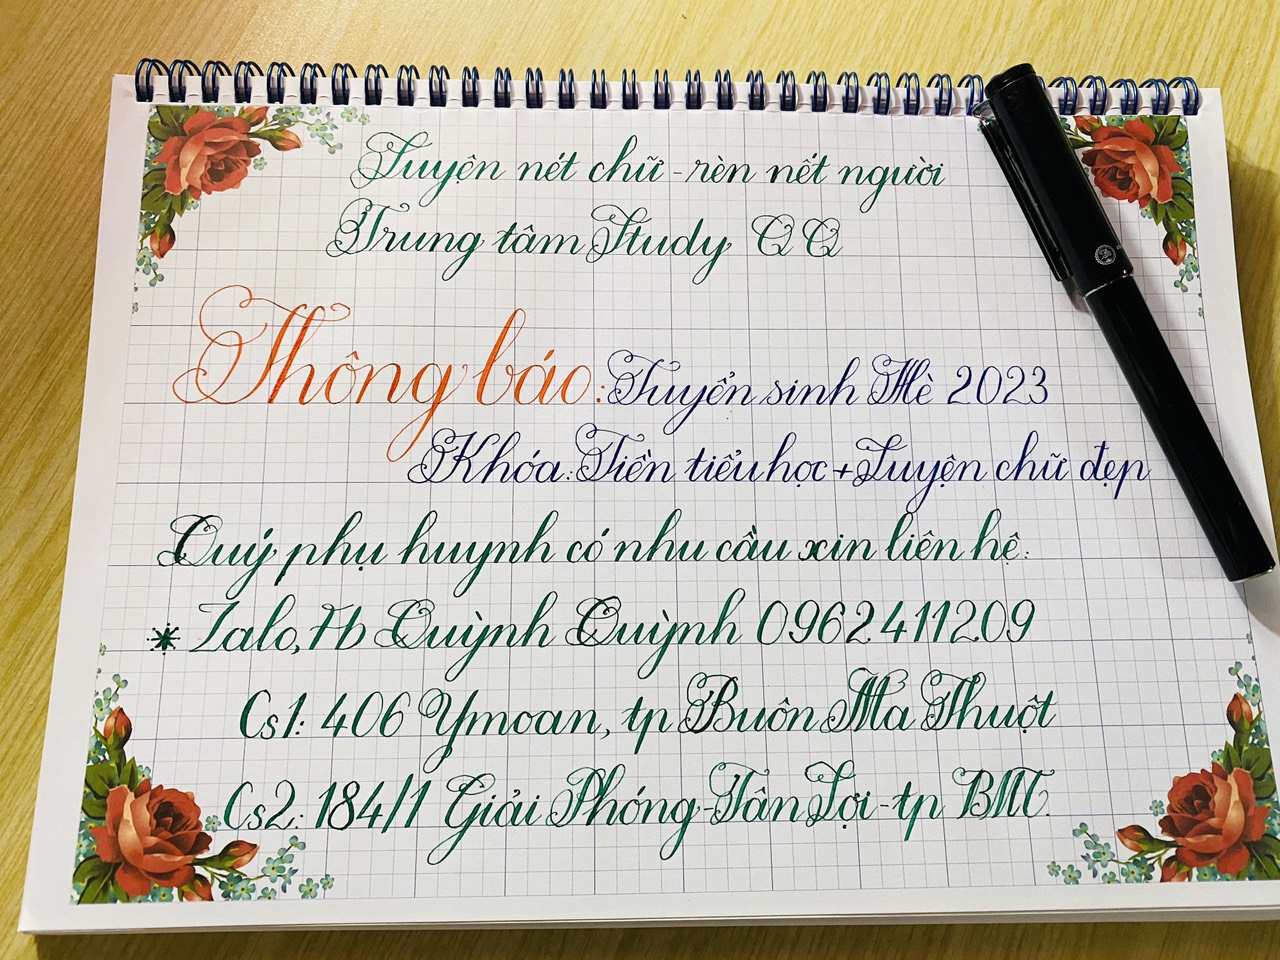 Luyện nét chữ - rèn nết người
Trung tâm Study QQ
Thông báo: Tuyển sinh Hè 2023
Khóa: Tiền tiểu học + Luyện chữ đẹp
Quý phụ huynh có nhu cầu xin liên hệ:
* Zalo, Fb Quỳnh Quỳnh 0962411209
Cs1: 406 Ymoan, tp Buôn Ma Thuột
Cs2: 184/1 Giải Phóng - Tân Lợi - tp BMT.